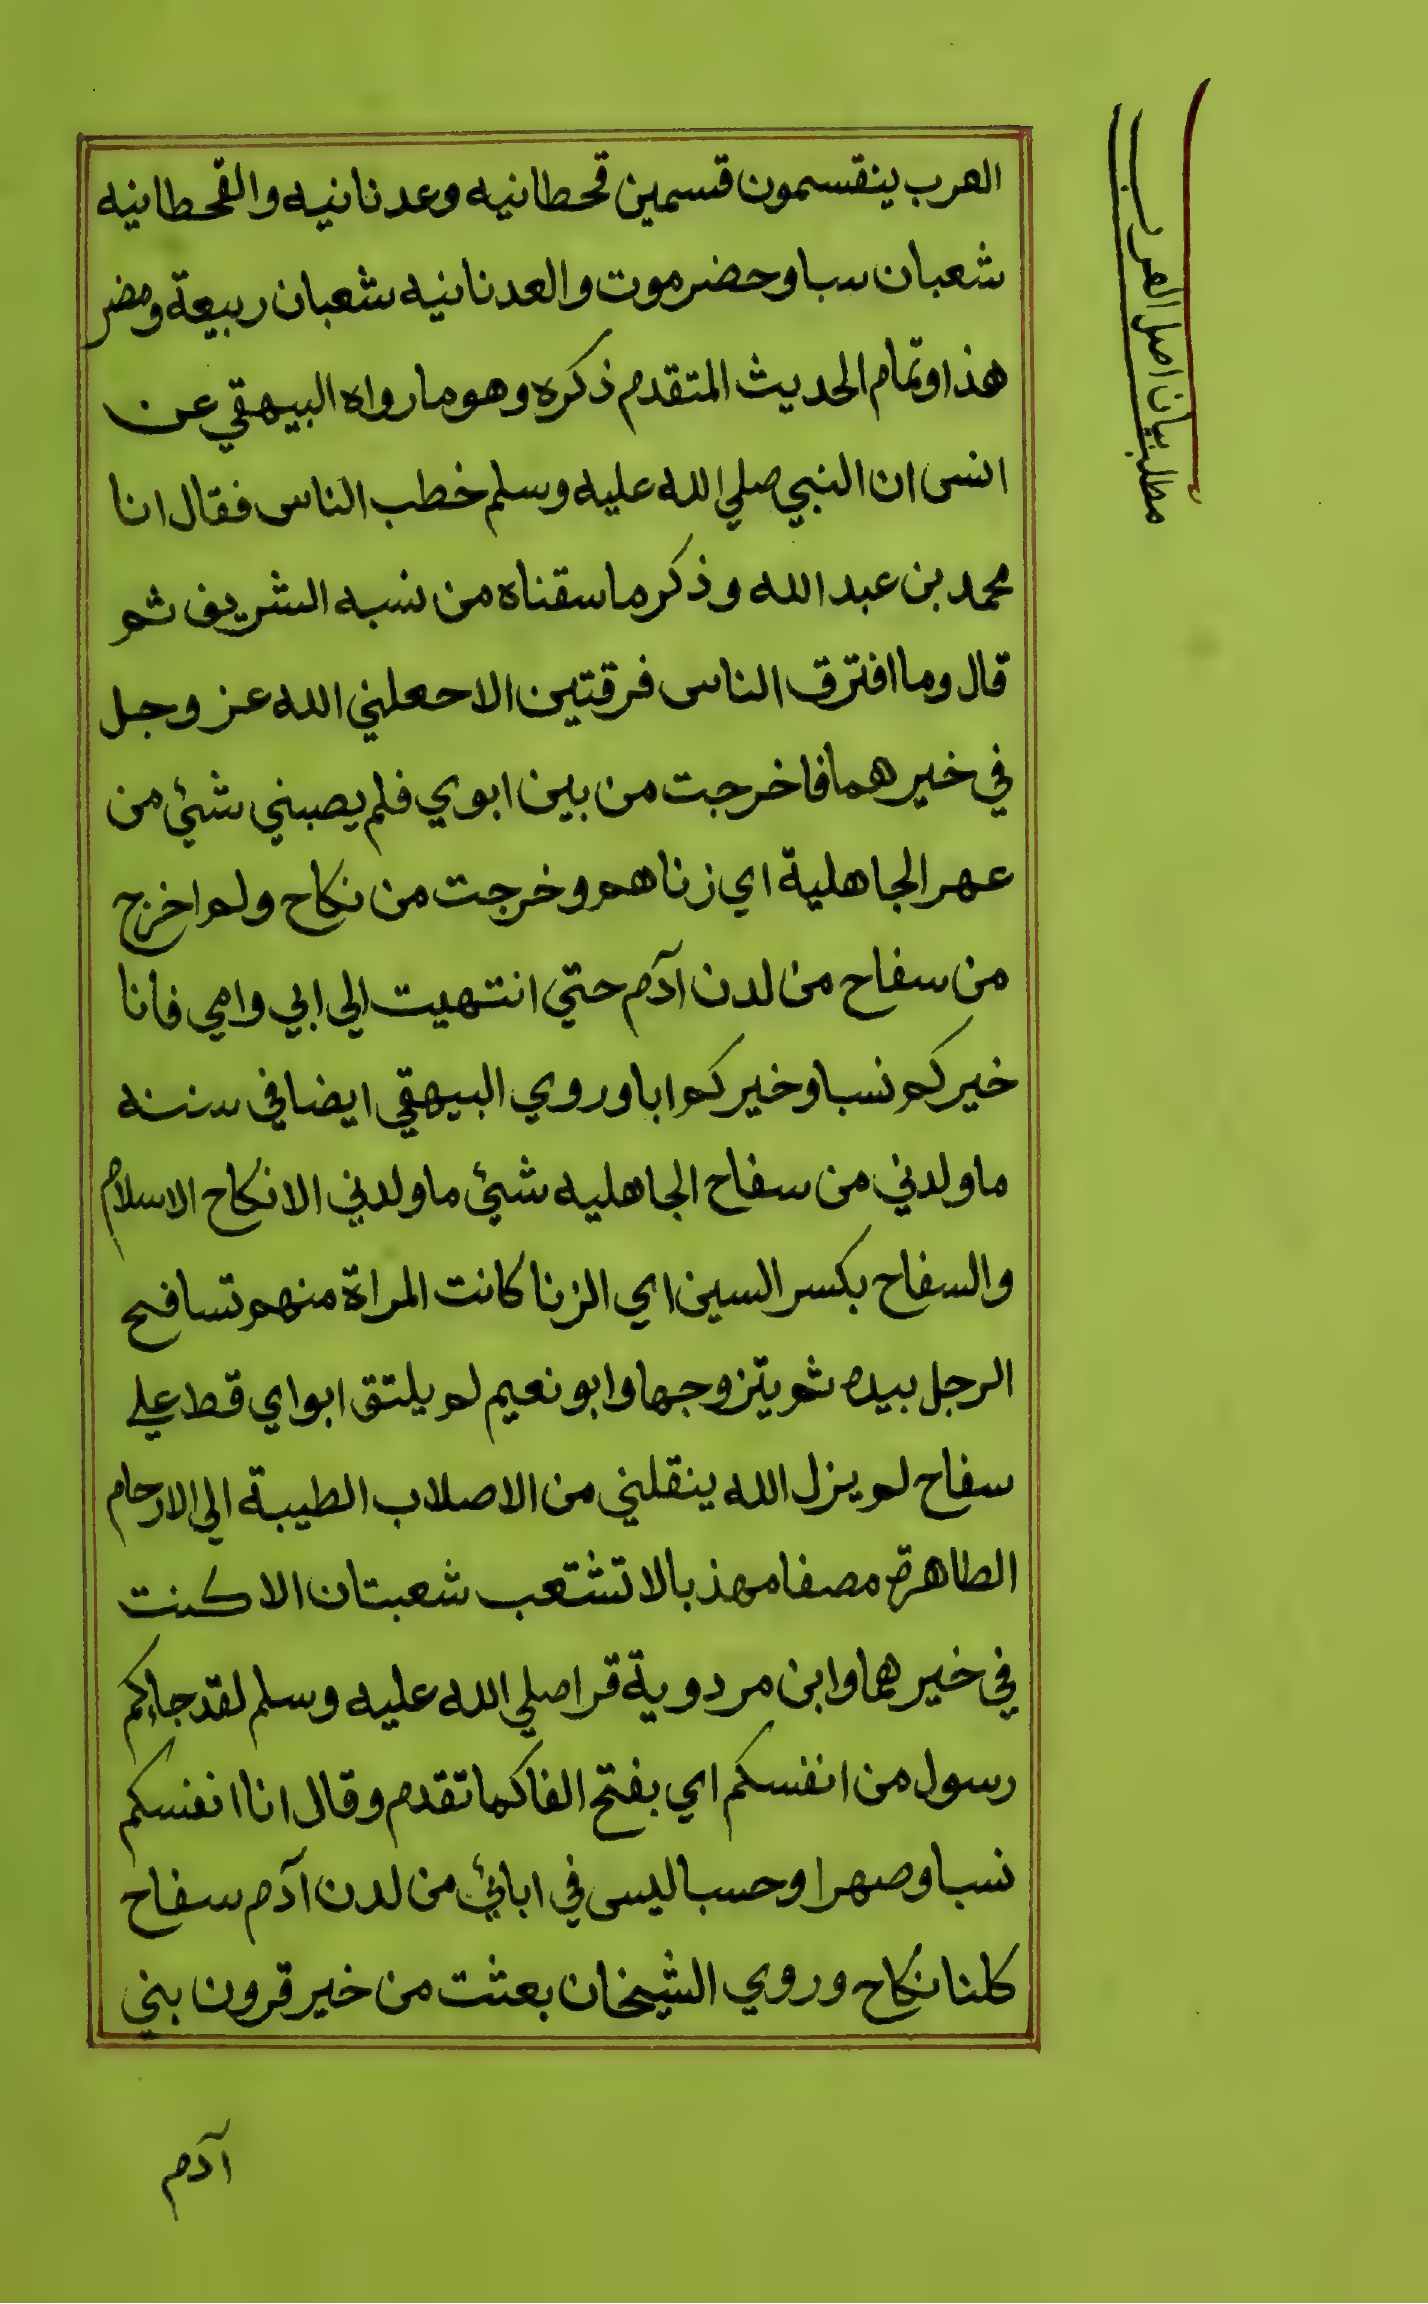 مطلب بيان اصل العرب
العرب ينقسمون قسمين قحطانيه وعدنانيه والقحطانيه
شعبان سبا وحضرموت والعدنانيه شعبان ربيعة ومضر
هذا وتمام الحديث المتقدم ذكره وهو مارواه البيهقي عن
انس ان النبي صلي الله عليه وسلم خطب الناس فقال انا
محمد بن عبد الله وذكر ما سقناه من نسبه الشريف ثم
قال وما افترق الناس فرقتين الا جعلني الله عز وجل
في خيرهما فاخرجت من بين ابوي فلم يصبني شئ من
عهر الجاهلية اي زناهم وخرجت من نكاح ولم اخرج
من سفاح من لدن آدم حتي انتهيت الي ابي وامي فانا
خيركم نسبا وخيركم ابا وروي البيهقي ايضا في سننه
ما ولدني من سفاح الجاهليه شئ ما ولدني الا نكاح الاسلام
والسفاح بكسر السين اي الزنا كانت المراة منهم تسافح
الرجل بيده ثم يتزوجها وابو نعيم لم يلتق ابواي قط علي
سفاح لم يزل الله ينقلني من الاصلاب الطيبة الي الارحام
الطاهرة مصفا مهذبا لا تشتعب شعبتان الا كنت
في خيرهما وابن مردوية قرا صلي الله عليه وسلم لقد جاءكم
رسول من انفسكم اي بفتح الفا كما تقدم وقال انا انفسكم
نسبا وصهرا وحسبا ليس في ابائي من لدن آدم سفاح
كلنا نكاح وروي الشيخان بعثت من خير قرون بني
آدم